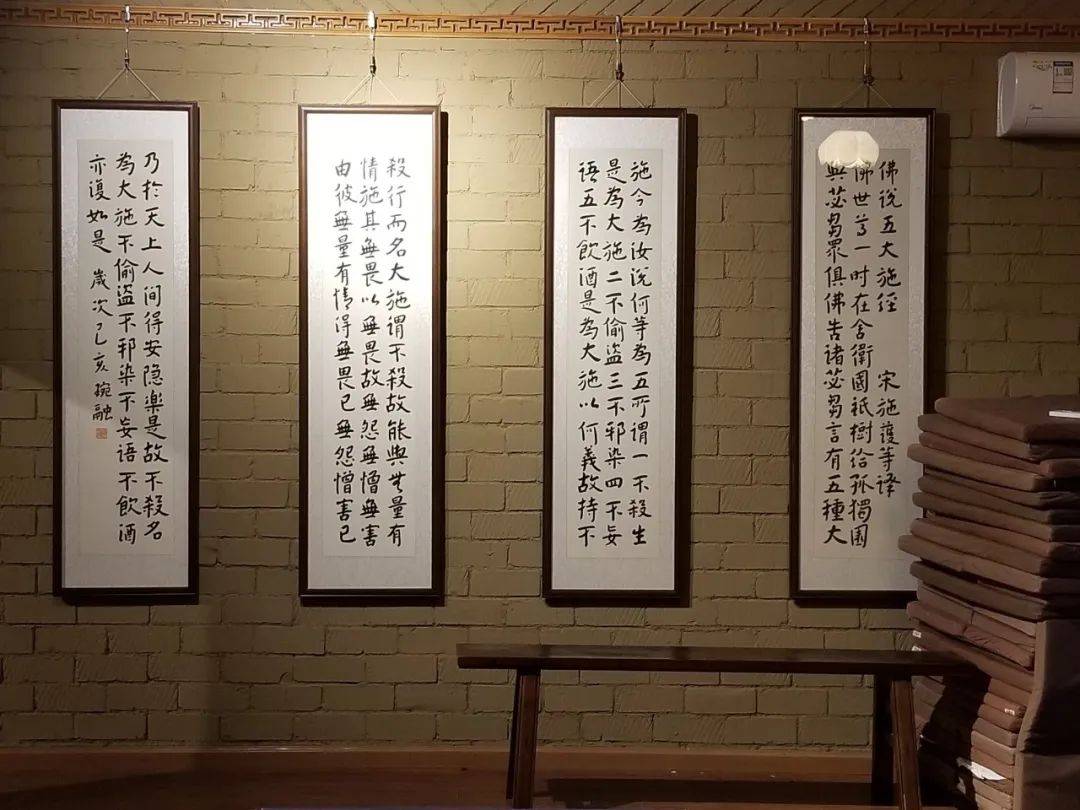 佛说五大施经 宋施護等译
佛世尊一时在舍衛國祇樹给孤獨園
與苾芻眾俱佛告诸苾芻言有五種大
施今為汝说何等為五所谓一不殺生
是為大施二不偷盗三不邪染四不妄
语五不飲酒是為大施以何義故持不
殺行而名大施谓不殺故能與無量有
情施其無畏以無畏故無怨無憎無害
由彼無量有情得無畏已無怨憎害已
乃於天上人间得安隐楽是故不殺名
為大施不偷盗不邪染不妄语不飲酒
亦復如是 歲次己亥 融
Midea